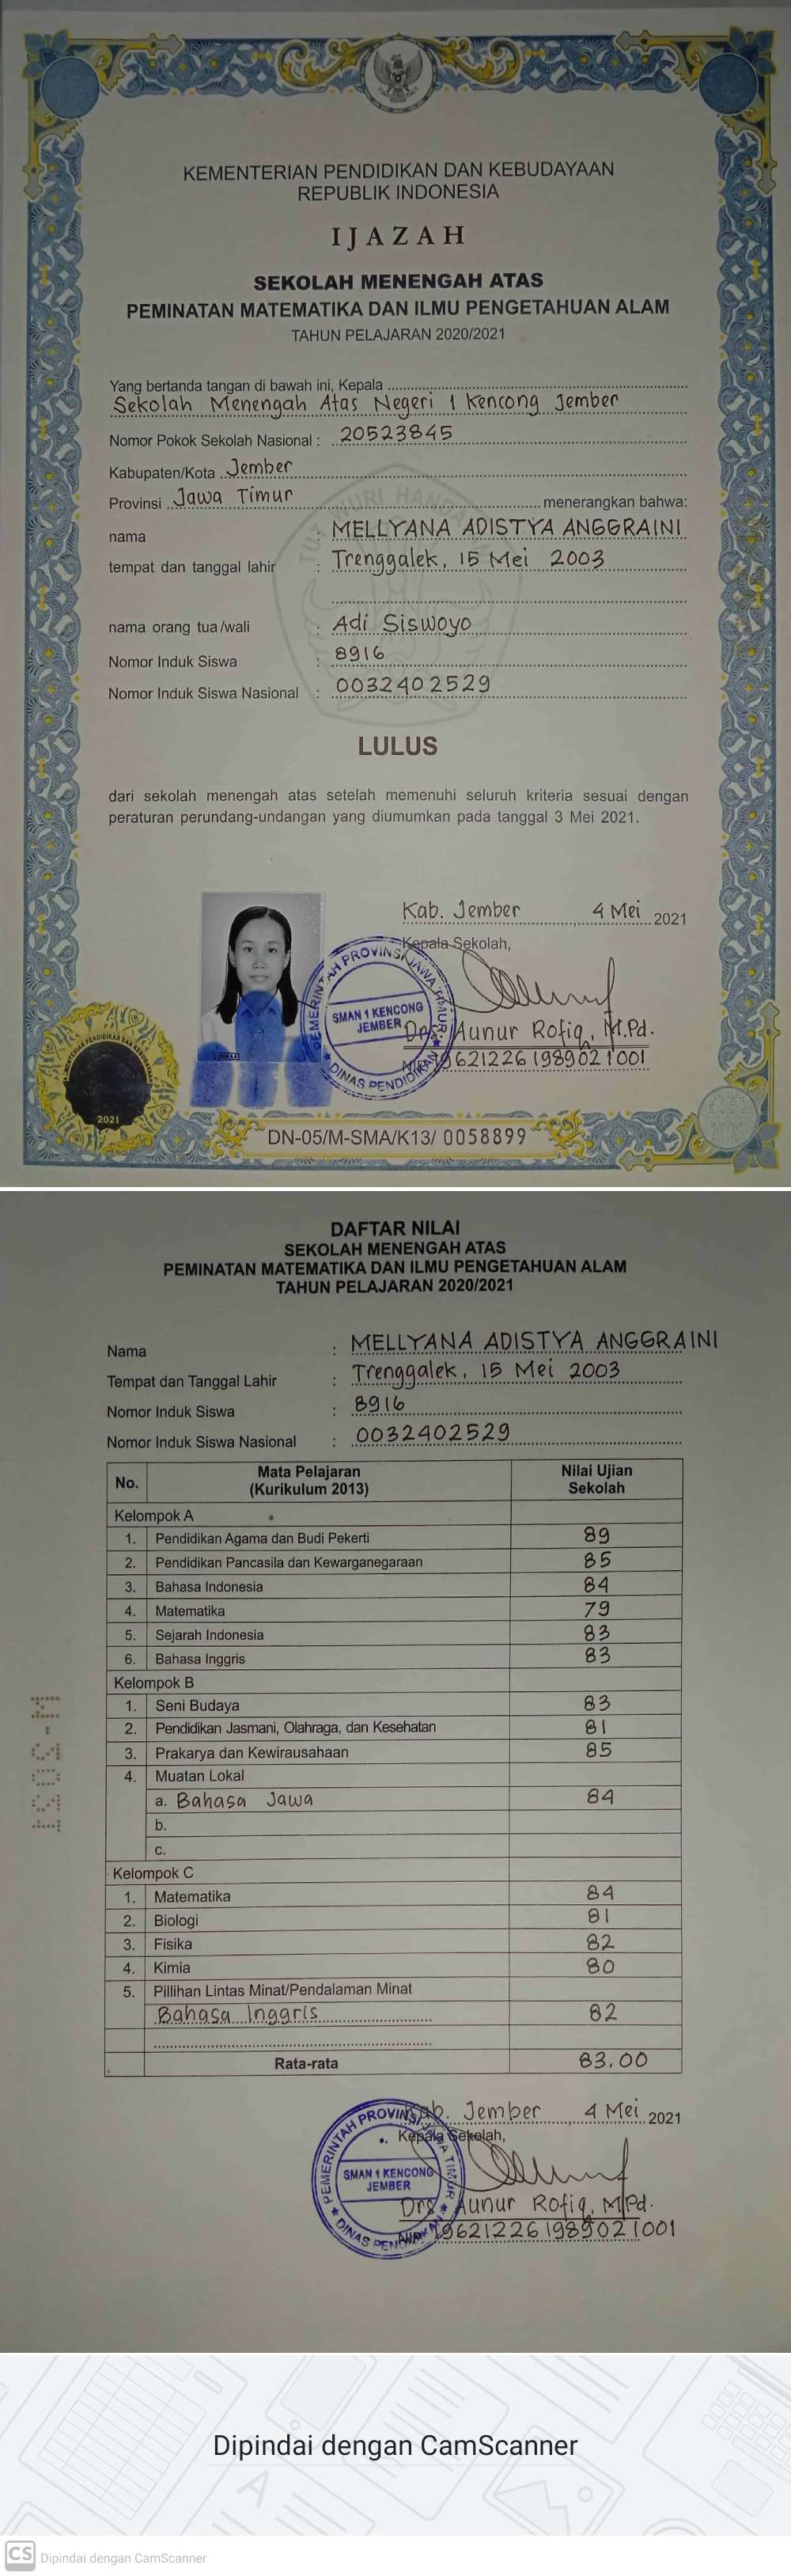 KEMENTERIAN PENDIDIKAN DAN KEBUDAYAAN
REPUBLIK INDONESIA
IJAZAH
SEKOLAH MENENGAH ATAS
PEMINATAN MATEMATIKA DAN ILMU PENGETAHUAN ALAM
TAHUN PELAJARAN 2020/2021
Yang bertanda tangan di bawah ini, Kepala
Sekolah Menengah Atas Negeri 1 Kencong Jember
Nomor Pokok Sekolah Nasional : 20523845
Kabupaten/Kota Jember
Provinsi Jawa Timur menerangkan bahwa:
nama : MELLYANA ADISTYA ANGGRAINI
tempat dan tanggal lahir : Trenggalek, 15 Mei 2003
nama orang tua/wali : Adi Siswoyo
Nomor Induk Siswa : 8916
Nomor Induk Siswa Nasional : 0032402529
LULUS
dari sekolah menengah atas setelah memenuhi seluruh kriteria sesuai dengan
peraturan perundang-undangan yang diumumkan pada tanggal 3 Mei 2021.
Kab. Jember, 4 Mei 2021
Kepala Sekolah,
PEMERINTAH PROVINSI JAWA TIMUR
SMAN 1 KENCONG
JEMBER
DINAS PENDIDIKAN
Drs. Aunur Rofiq, M.Pd.
NIP. 196212261989021001
2021
DN-05/M-SMA/K13/ 0058899
DAFTAR NILAI
SEKOLAH MENENGAH ATAS
PEMINATAN MATEMATIKA DAN ILMU PENGETAHUAN ALAM
TAHUN PELAJARAN 2020/2021
Nama : MELLYANA ADISTYA ANGGRAINI
Tempat dan Tanggal Lahir : Trenggalek, 15 Mei 2003
Nomor Induk Siswa : 8916
Nomor Induk Siswa Nasional : 0032402529
No. Mata Pelajaran (Kurikulum 2013) Nilai Ujian Sekolah
Kelompok A
1. Pendidikan Agama dan Budi Pekerti 89
2. Pendidikan Pancasila dan Kewarganegaraan 85
3. Bahasa Indonesia 84
4. Matematika 79
5. Sejarah Indonesia 83
6. Bahasa Inggris 83
Kelompok B
1. Seni Budaya 83
2. Pendidikan Jasmani, Olahraga, dan Kesehatan 81
3. Prakarya dan Kewirausahaan 85
4. Muatan Lokal
a. Bahasa Jawa 84
b.
c.
Kelompok C
1. Matematika 84
2. Biologi 81
3. Fisika 82
4. Kimia 80
5. Pillihan Lintas Minat/Pendalaman Minat
Bahasa Inggris 82
Rata-rata 83.00
Kab. Jember, 4 Mei 2021
Kepala Sekolah,
PEMERINTAH PROVINSI JAWA TIMUR
SMAN 1 KENCONG
JEMBER
DINAS PENDIDIKAN
Drs. Aunur Rofiq, M.Pd.
NIP. 196212261989021001
Dipindai dengan CamScanner
CS Dipindai dengan CamScanner